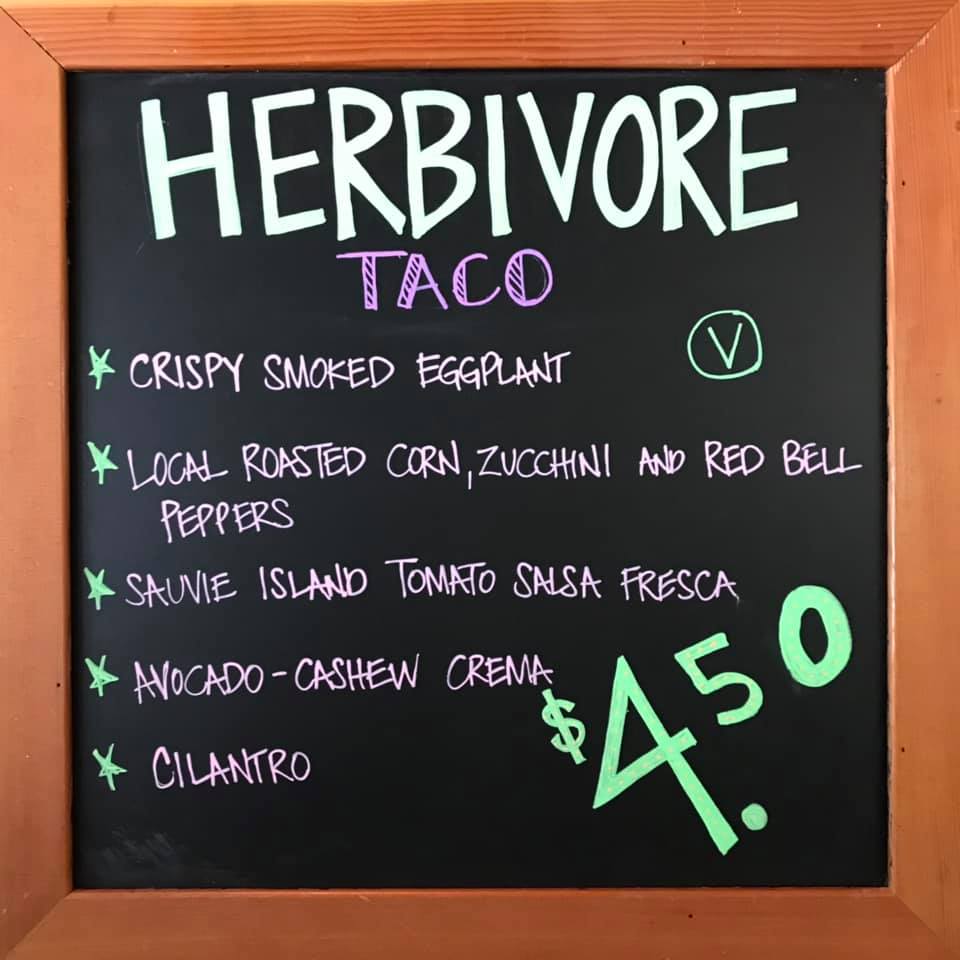 HERBIVORE
TACO
V
CRISPY SMOKED EGGPLANT
LOCAL ROASTED CORN, ZUCCHINI AND RED BELL
PEPPERS
SAUVIE ISLAND TOMATO SALSA FRESCA
AVOCADO-CASHEW CREMA
CILANTRO
$4.50